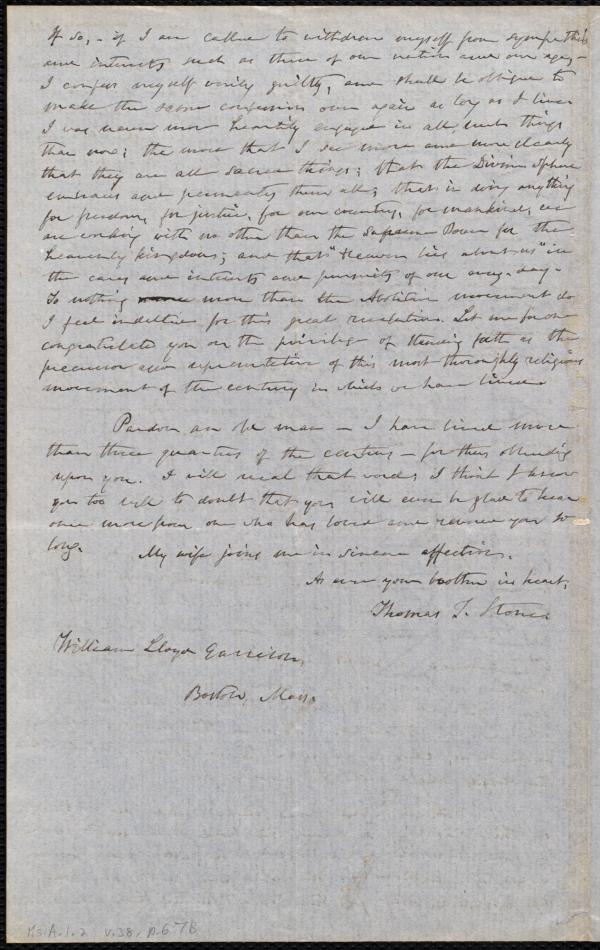 If so, - if I am called to withdraw myself from sympathies
and interests such as these of our nation and our age, -
I confess myself verily guilty, and shall be obliged to
make the same confession over again as long as I live.
I was never more heartily engaged in all such things
than now; the more that I see more and more clearly
that they are all sacred things; that the Divine Sphere
embraces and permeates them all; that in doing anything
for freedom, for justice, for our country, for mankind, we
are working with no other than the Supreme Power for the
heavenly kingdom; and that "Heaven lies about us" in
the cares and interests and pursuits of our every-day.
To nothing more than the Abolition movement do
I feel indebted for this great revelation. Let me for one
congratulate you on the privilege of standing forth as the
precursor and representative of this most thoroughly religious
movement of the century in which we have lived.
Pardon an old man - I have lived more
than three quarters of the century - for thus obtruding
upon you. I will recal that word; I think I know
you too well to doubt that you will ever be glad to hear
once more from one who has loved and revered you so
long. My wife joins me in sincere affection.
As ever your brother in heart,
Thomas T. Stone.
William Lloyd Garrison,
Boston, Mass.
Ms. A. 1. 2 v. 38, p. 67B